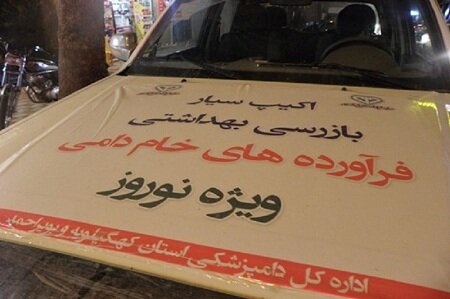 اکیپ سیار
بازرسی بهداشتی
فرآورده های خام دامی
ویژه نوروز
اداره کل دامپزشکی استان کهگیلویه و بویراحمد